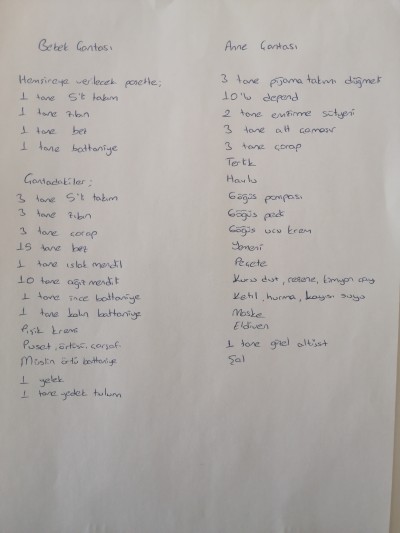 Bebek Çantası
Hemşireye verilecek poşette;
1 tane 5'li takım
1 tane zıbın
1 tane bez
1 tane battaniye
Çantadakiler;
3 tane 5'li takım
3 tane zıbın
3 tane çorap
15 tane bez
1 tane ıslak mendil
10 tane ağız mendili
1 tane ince battaniye
1 tane kalın battaniye
Pişik kremi
Puset, örtüsü, çarşaf
Müslin örtü battaniye
1 yelek
1 tane yedek tulum
Anne Çantası
3 tane pijama takımı düğmeli
10'lu depend
2 tane emzirme sütyeni
3 tane alt çamaşır
3 tane çorap
Terlik
Havlu
Göğüs pompası
Göğüs pedi
Göğüs ucu kremi
Yemeni
Peçete
Kuru dut, rezene, kimyon çayı
Ketıl, hurma, kayısı suyu
Maske
Eldiven
1 tane güzel altüst
Şal